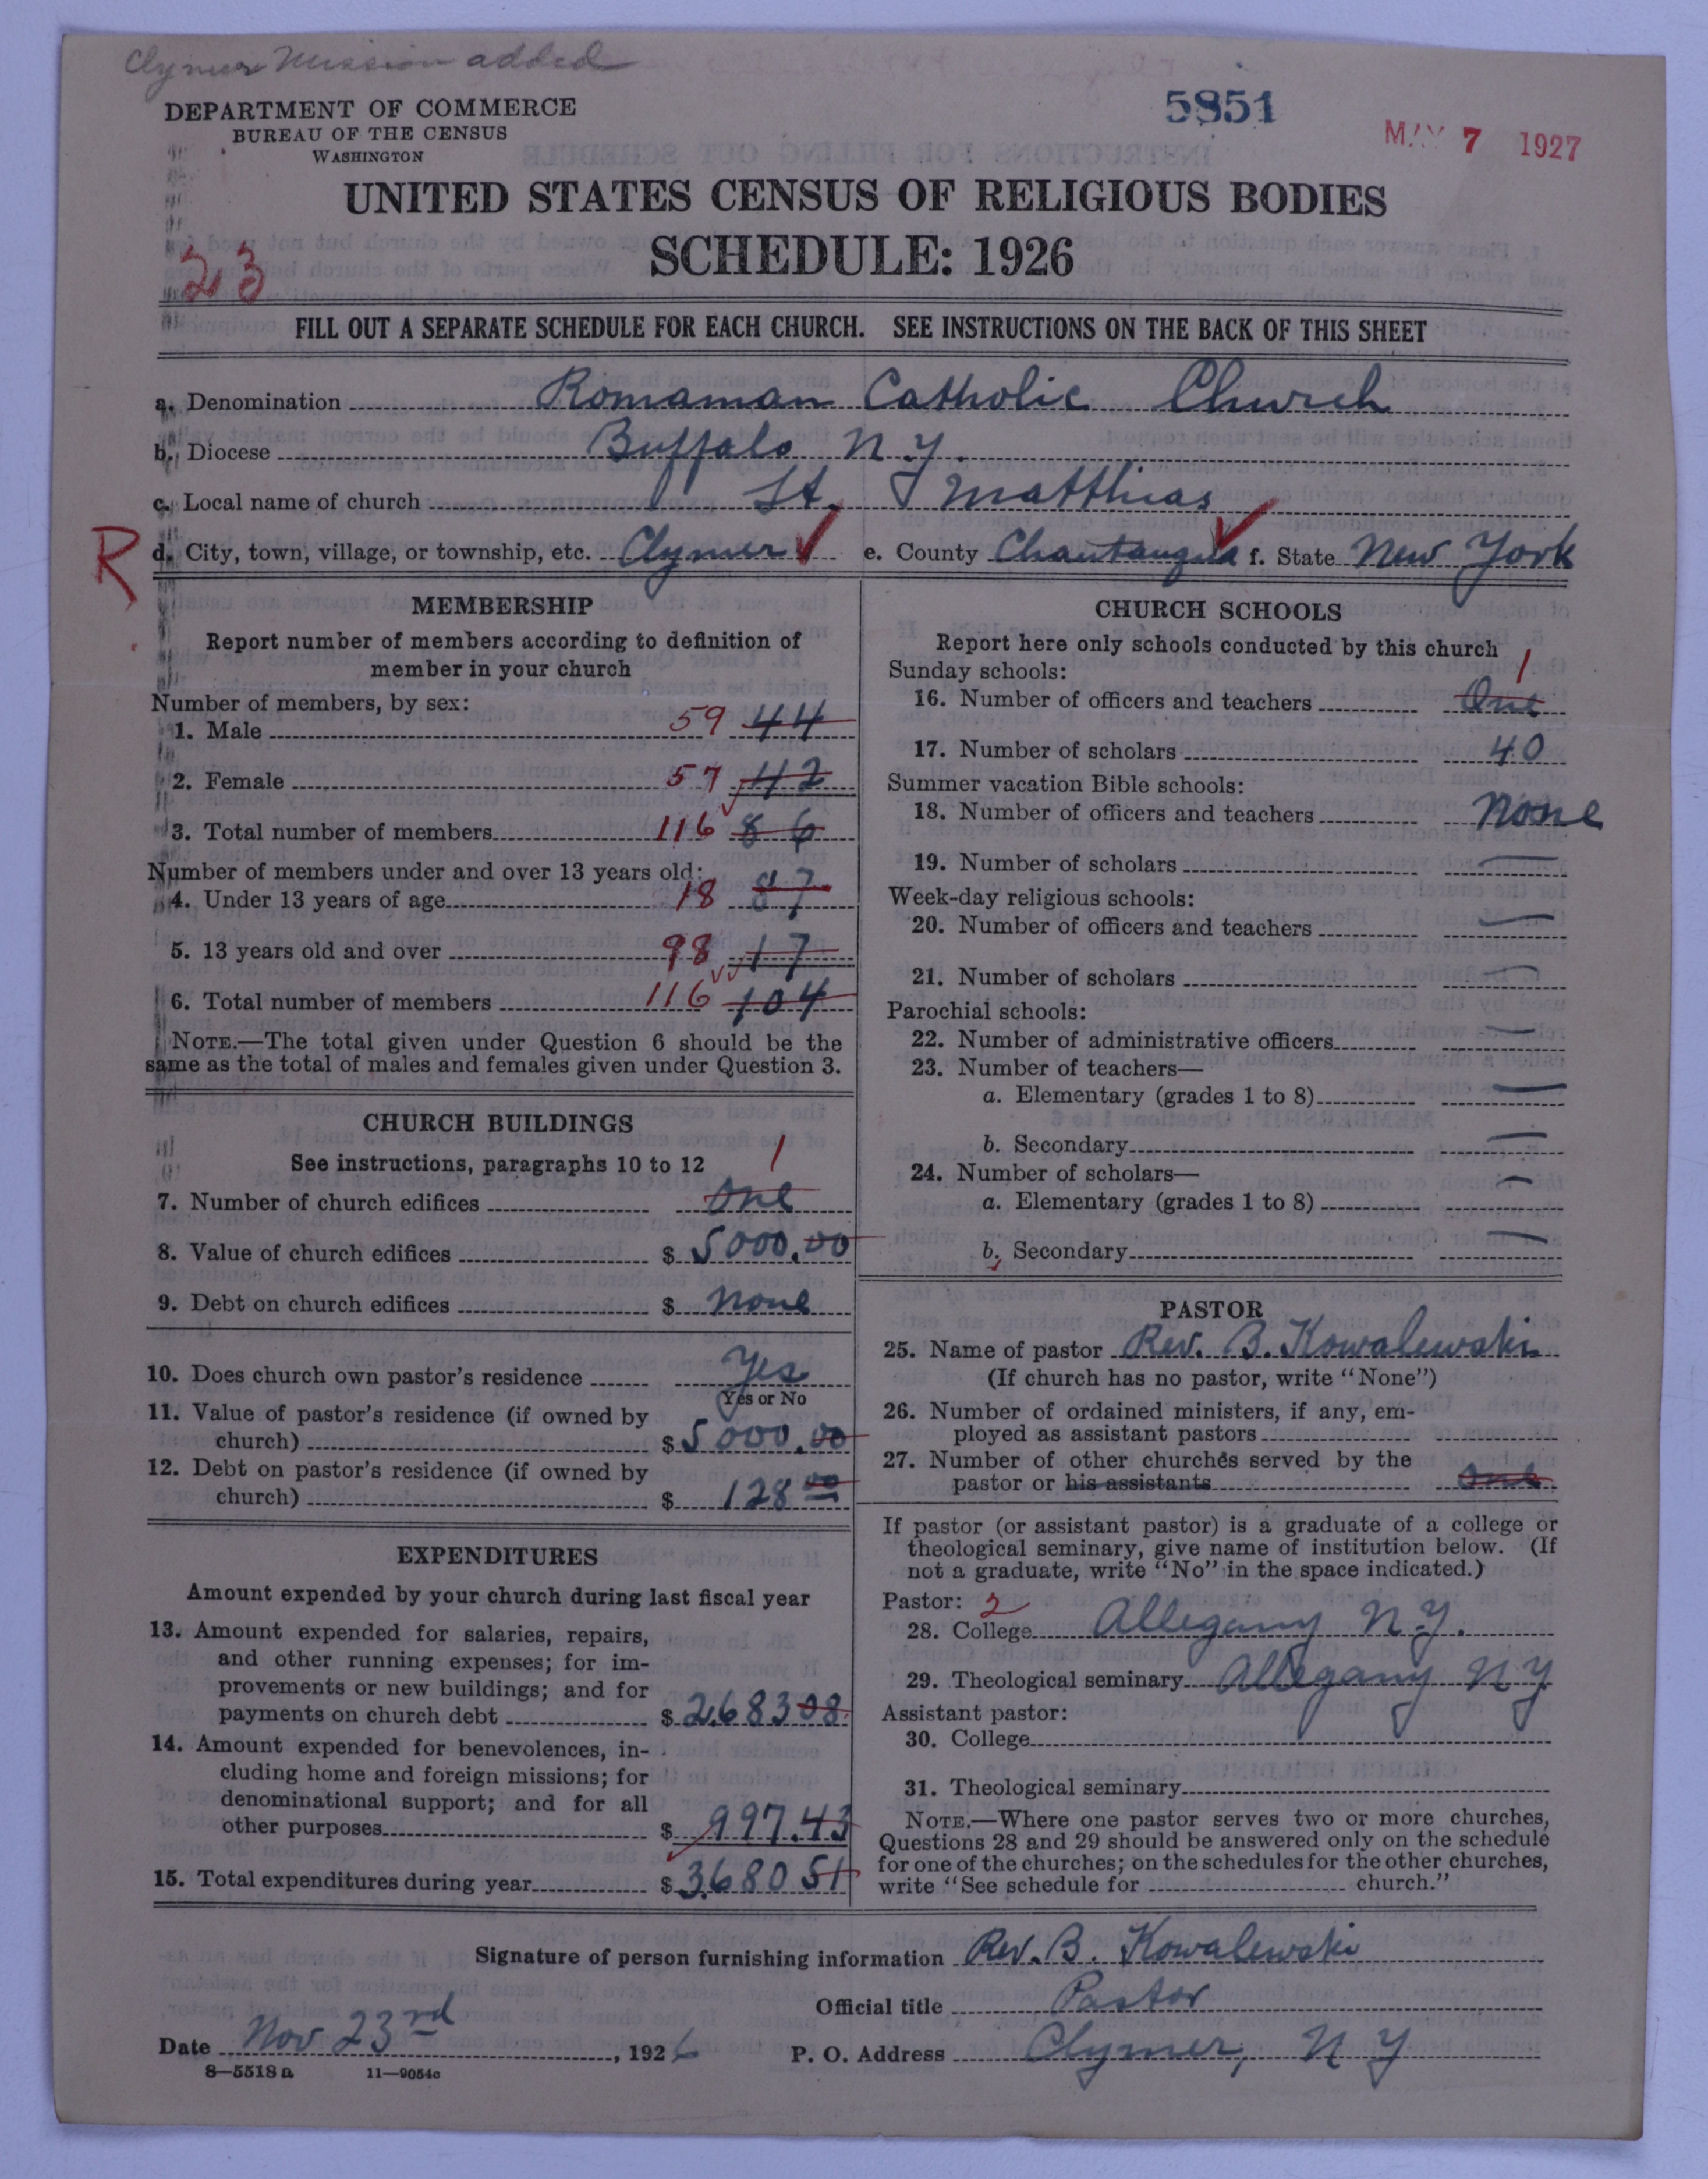 Clymer Mission added
DEPARTMENT OF COMMERCE
BUREAU OF THE CENSUS
WASHINGTON
5851
MAY 7 1927
UNITED STATES CENSUS OF RELIGIOUS BODIES
SCHEDULE: 1926
23
FILL OUT A SEPARATE SCHEDULE FOR EACH CHURCH. SEE INSTRUCTIONS ON THE BACK OF THIS SHEET
a. Denomination Romaman Catholic Church
b. Diocese Buffalo N.Y.
c. Local name of church St. Matthias
R d. City, town, village, or township, etc. Clymer e. County Chautauqua f. State New York
MEMBERSHIP
Report number of members according to definition of
member in your church
Number of members, by sex:
1. Male 59 44
2. Female 57 42
3. Total number of members 116 86
Number of members under and over 13 years old:
4. Under 13 years of age 18 87
5. 13 years old and over 98 17
6. Total number of members 116 104
NOTE.—The total given under Question 6 should be the
same as the total of males and females given under Question 3.
CHURCH BUILDINGS
See instructions, paragraphs 10 to 12
1
7. Number of church edifices One
8. Value of church edifices $ 5000.00
9. Debt on church edifices $ None
10. Does church own pastor's residence Yes
Yes or No
11. Value of pastor's residence (if owned by
church) $ 5000.00
12. Debt on pastor's residence (if owned by
church) $ 128 00
EXPENDITURES
Amount expended by your church during last fiscal year
13. Amount expended for salaries, repairs,
and other running expenses; for im-
provements or new buildings; and for
payments on church debt $ 2683 08
14. Amount expended for benevolences, in-
cluding home and foreign missions; for
denominational support; and for all
other purposes $ 997.43
15. Total expenditures during year $ 3680 51
CHURCH SCHOOLS
Report here only schools conducted by this church
Sunday schools:
1
16. Number of officers and teachers One
17. Number of scholars 40
Summer vacation Bible schools:
18. Number of officers and teachers None
19. Number of scholars —
Week-day religious schools:
20. Number of officers and teachers —
21. Number of scholars —
Parochial schools:
22. Number of administrative officers —
23. Number of teachers—
a. Elementary (grades 1 to 8) —
b. Secondary —
24. Number of scholars—
a. Elementary (grades 1 to 8) —
b. Secondary —
PASTOR
25. Name of pastor Rev. B. Kowalewski
(If church has no pastor, write "None")
26. Number of ordained ministers, if any, em-
ployed as assistant pastors
27. Number of other churches served by the
pastor or his assistants one
If pastor (or assistant pastor) is a graduate of a college or
theological seminary, give name of institution below. (If
not a graduate, write "No" in the space indicated.)
Pastor: 2
28. College Allegany N.Y.
29. Theological seminary Allegany N Y
Assistant pastor:
30. College
31. Theological seminary
NOTE.—Where one pastor serves two or more churches,
Questions 28 and 29 should be answered only on the schedule
for one of the churches; on the schedules for the other churches,
write "See schedule for church."
Signature of person furnishing information Rev. B. Kowalewski
Official title Pastor
Date Nov 23rd, 1926 P. O. Address Clymer, N Y
8—5518 a 11—9054c